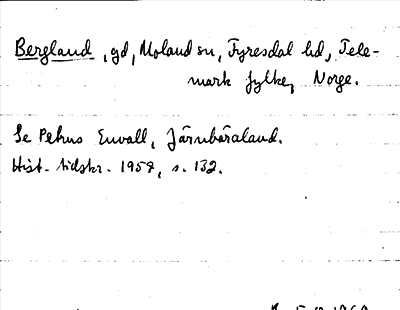 Bergland, gd, Moland sn, Fyresdal hd, Tele-
mark fylke, Norge.
Se Petrus Envall, Järnbäraland.
Hist. tidskr. 1958, s. 132.